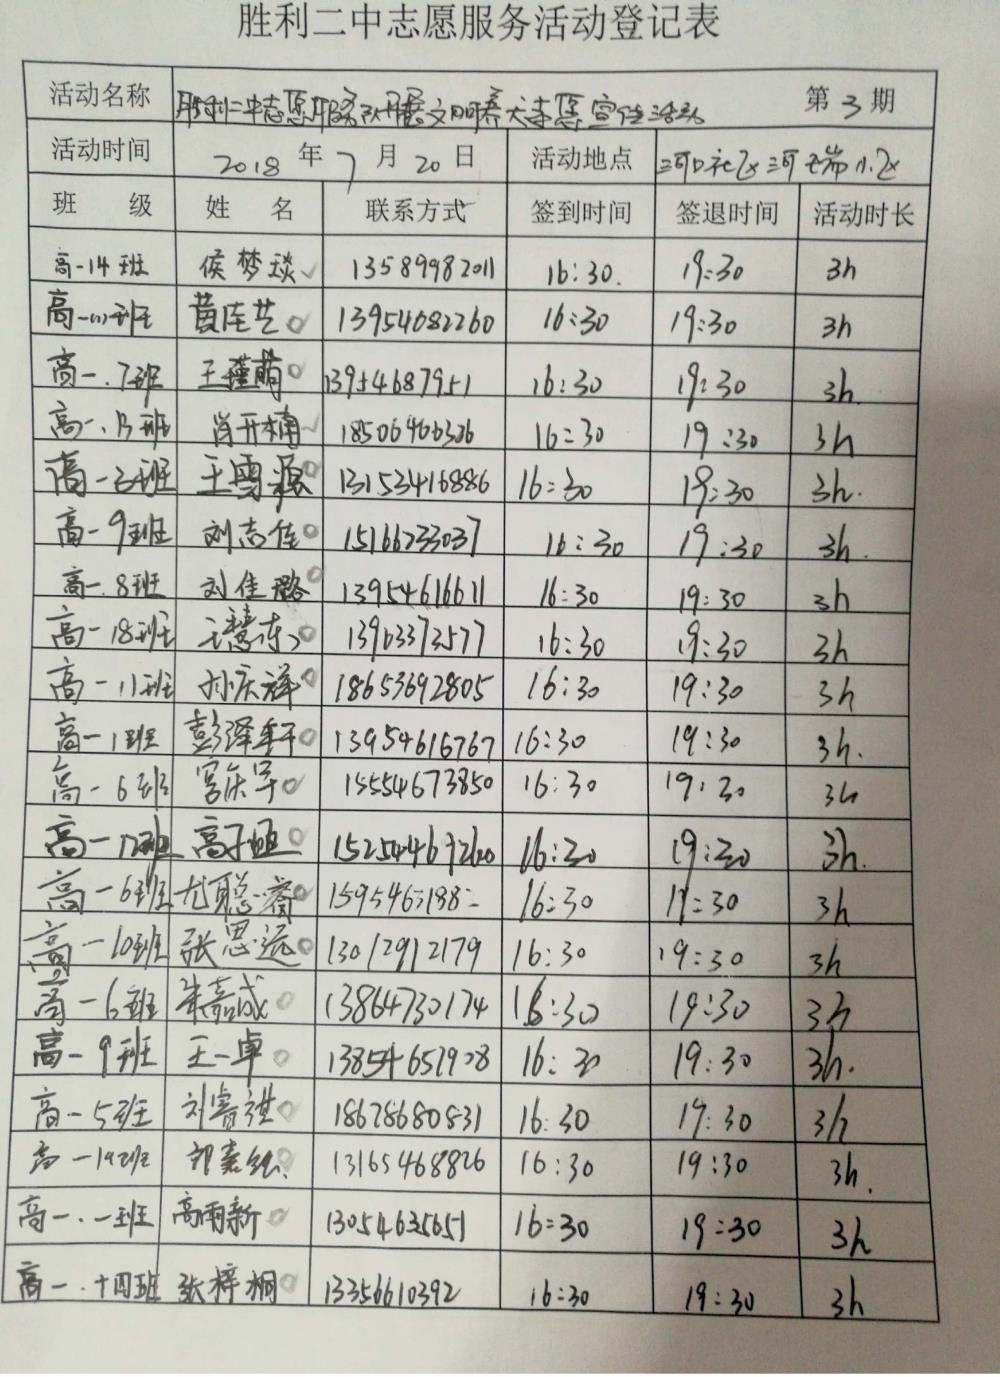 胜利二中志愿服务活动登记表
活动名称 胜利二中志愿服务队开展文明养犬志愿宣传活动 第3期
活动时间 2018年7月20日 活动地点 河口社区河瑞小区
班 级 姓 名 联系方式 签到时间 签退时间 活动时长
高一14班 侯梦琰 13589982011 16:30. 19:30 3h
高一(11)班 黄佳艺 13954082260 16:30 19:30 3h
高一.7班 王瑾萌 13954687951 16:30 19:30 3h.
高一.13班 肖开楠 16:30 19:30 3h
高一3班 王雪源 13153416886 16:30 19:30 3h.
高一9班 刘志佳 15166733037 16:30 19:30 3h.
高一.8班 刘佳璐 13954616611 16:30 19:30 3h
高一18班 13903373577 16:30 19:30 3h
高一11班 孙庆祥 18653692805 16:30 19:30 3h
高一1班 彭泽轩 13954616767 16:30 19:30 3h.
高一6班 宫庆军 15554673850 16:30 19:30 3h
高一12班 高子恒 16:30 19:30 3h.
高一6班 尤聪 16:30 19:30 3h
高一10班 张思远 13012912179 16:30 19:30 3h
高一6班 朱嘉成 13864730174 16:30 19:30 3h
高一9班 王一卓 13854651908 16:30 19:30 3h.
高一5班 刘睿祺 18678680831 16:30 19:30 3h
高一19班 郭嘉 13165468826 16:30 19:30 3h.
高一.一班 高雨新 13054635651 16:30 19:30 3h
高一.十四班 张梓桐 13356610392 16:30 19:30 3h